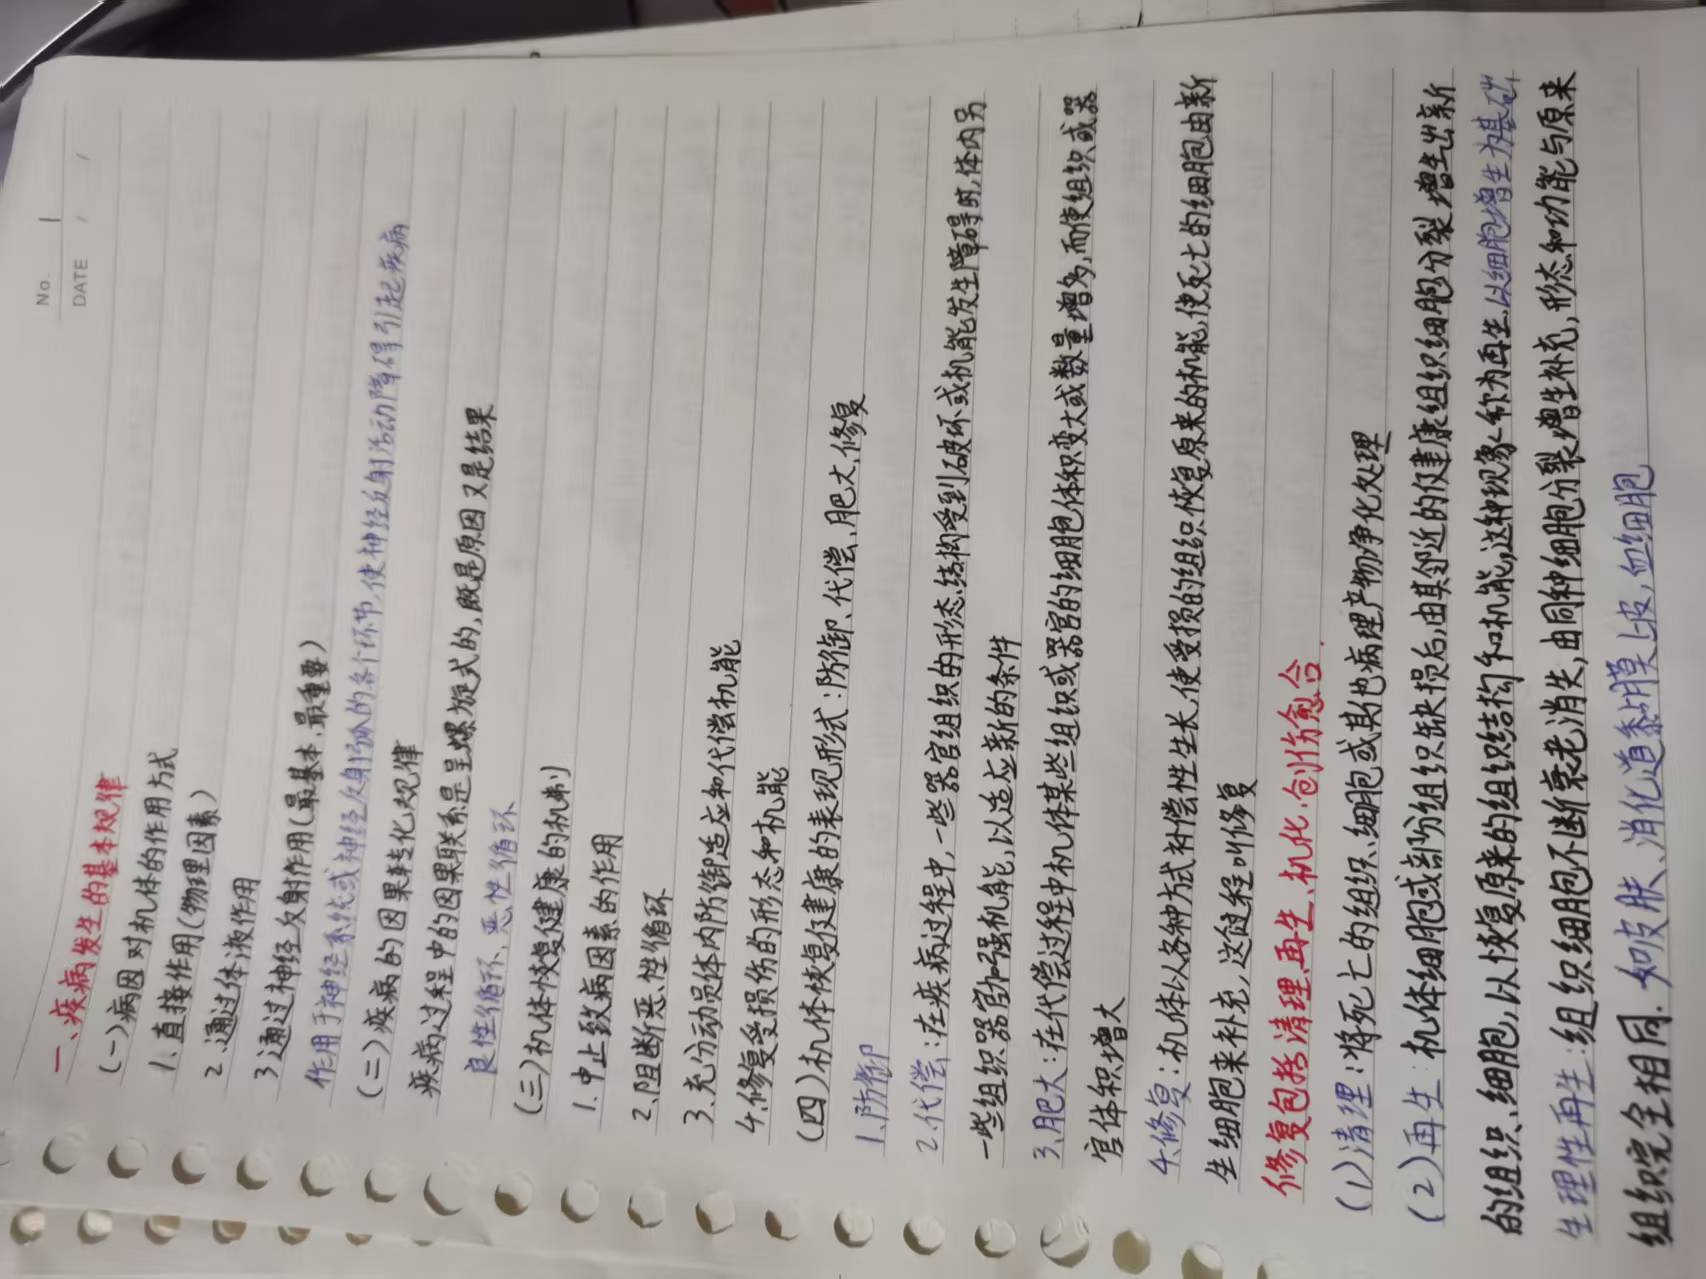 No. 1
DATE / /
一、疾病发生的基本规律
(一)病因对机体的作用方式
1.直接作用(物理因素)
2.通过体液作用
3通过神经反射作用(最基本、最重要)
作用于神经系统或神经反射弧的各个环节,使神经反射活动障碍引起疾病
(二)疾病的因果转化规律
疾病过程中的因果联系是呈螺旋式的,既是原因又是结果
良性循环、恶性循环
(三)机体恢复健康的机制
1.中止致病因素的作用
2.阻断恶性循环
3.充分动员体内防御适应和代偿机能
4.修复受损伤的形态和机能
(四)机体恢复健康的表现形式:防御、代偿、肥大、修复
1.防御
2.代偿:在疾病过程中,一些器官组织的形态、结构受到破坏或机能发生障碍时,体内另
一些组织器官加强机能,以适应新的条件
3.肥大:在代偿过程中机体某些组织或器官的细胞体积变大或数量增多,而使组织或器
官体积增大
4.修复:机体以各种方式补偿性生长,使受损的组织恢复原来的机能,使死亡的细胞由新
生细胞来补充,这过程叫修复
修复包括清理、再生、机化、创伤愈合.
(1)清理:将死亡的组织、细胞或其他病理产物净化处理
(2)再生:机体细胞或部分组织缺损后,由其邻近的健康组织细胞分裂增生出新
的组织、细胞,以恢复原来的组织结构和机能,这种现象称为再生.以细胞增生为基础
生理性再生:组织细胞不断衰老消失,由同种细胞分裂增生补充,形态和功能与原来
组织完全相同.如皮肤、消化道黏膜上皮,血细胞